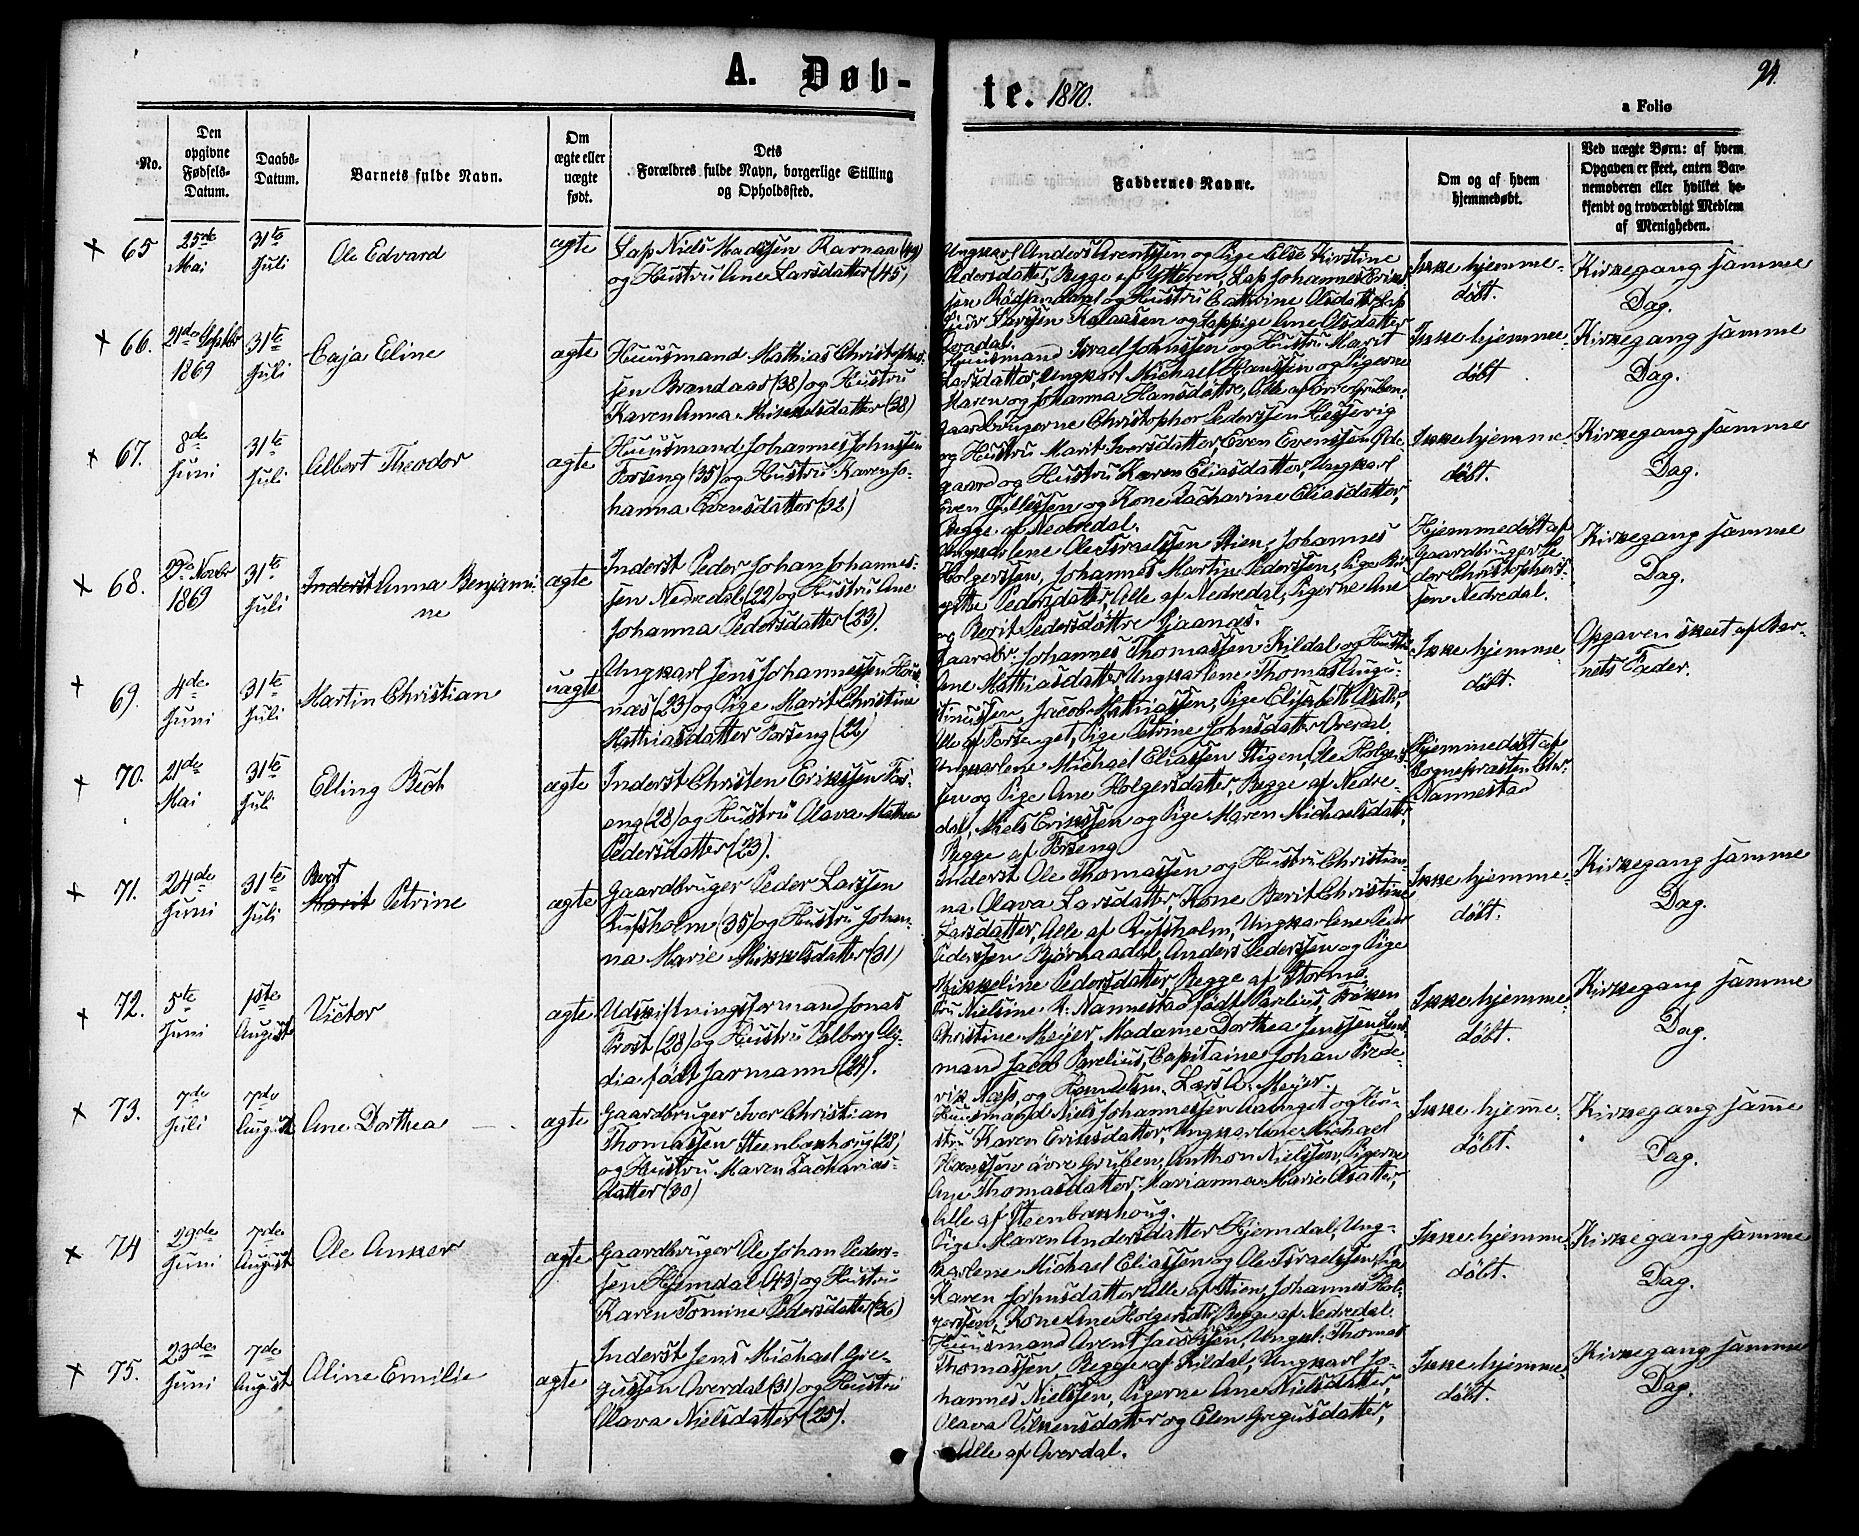 A. Døb-
te. 1870.
94.
a Folio
No.
Den opgivne Fødsels-Datum.
Daabs-Datum.
Barnets fulde Navn.
Om ægte eller uægte født.
Dets Forældres fulde Navn, borgerlige Stilling og Opholdssted.
Faddernes Navne.
Om og af hvem hjemmedøbt.
Ved uægte Børn: af hvem Opgaven er skeet, enten Barnemoderen eller hvilket bekjendt og troværdigt Medlem af Menigheden.
65
25de Mai
31te Juli
Ole Edvard
ægte
Lap Niels Madssen Ravnaa (49)
og Hustru Ane Larsdatter (45)
Ungkarl Anders Arentssen og Pige Else Kirstine
Pedersdatter, Begge af Ytteren, Lap Johannes Erik-
sen Rødfjeldet og Hustru Cathrine Olsdatter, Lap
Larssen og Lappige Ane Olsdatter
Ikke hjemme-
døbt.
Kirkegang samme
Dag.
66.
21de Septbr
1869
31te Juli
Caja Eline
ægte
Huusmand Mathias Christophers-
sen Brandaas (38) og Hustru
Karen Anna Mikkelsdatter (38)
Huusmand Israel Johnssen og Hustru Marit
Larsdatter, Ungkarl Michael Hanssen og Pigerne
Maren og Johanna Hansdøttre, Alle af øvre Gruben.
Ikke hjemme-
døbt
Kirkegang samme
Dag.
67.
8de Juni
31te Juli
Albert Theodor
ægte
Huusmand Johannes Johnssen
Forseng (35) og Hustru Karen Jo-
hanna Evensdatter (32)
Gaardbrugerne Christopher Pederssen Hessevig
og Hustru Marit Iversdatter, Even Evenssen Øde-
gaard og Hustru Karen Eliasdatter, Ungkarl
Even Tollefssen og Kone Zacharine Eliasdatter,
Begge af Nedredal.
Ikke hjemme-
døbt.
Kirkegang samme
Dag.
68.
29de Novbr
1869
31te Juli
Inderst Anna Benjami-
ne
ægte
Inderst Peder Johan Johannes-
sen Nedredal (22) og Hustru Ane
Johanna Pedersdatter (23).
Ungkarlene Ole Israelssen Stien, Johannes
Holgerssen, Johannes Martin Pederssen, Pige Bir-
gitte Pedersdatter, Alle af Nedredal, Pigerne Ane
og Berit Pedersdøttre Bjaanæs.
Hjemmedøbt af
Gaardbruger Pe-
der Christophers-
sen Nedredal.
Kirkegang samme
Dag.
69.
4de Juni
31te Juli
Martin Christian
uægte
Ungkarl Jens Johannessen Hous-
næs (23) og Pige Marit Christine
Mathiasdatter Forseng (22)
Gaardbr. Johannes Thomassen Kildal og Hustru
Ane Mathiasdatter, Ungkarlene Thomas Augu-
stinussen, Jacob Mathiassen, Pige Elisabeth Olsdtr,
Alle af Forsenget, Pige Petrine Johnsdatter Overdal.
Ikke hjemme-
døbt.
Opgaven skeet af Bar-
nets Fader.
70.
21de Mai
31te Juli
Elling Bech
ægte
Inderst Christen Erikssen Fors-
eng (28) og Hustru Olava Mathea
Pedersdatter (23).
Ungkarlene Michael Eliassen Stigen, Ole Holgers-
sen og Pige Ane Holgersdatter, Begge af Nedre-
dal, Niels Erikssen og Pige Maren Michaelsdatter,
Begge af Forseng
Hjemmedøbt af
Sognepræsten
Nannestad
71.
24de Juni
31te Juli
Berit
Marit Petrine
ægte
Gaardbruger Peder Larssen
Rufsholm (35) og Hustru Johan-
na Marie Mikkelsdatter (31)
Inderst Ole Thomassen og Hustru Christian-
na Olava Larsdatter, Kone Berit Christine
Larsdatter, Alle af Rufsholm, Ungkarlene Peder
Pederssen Bjørnaadal, Anders Pederssen og Pige
Mikkeline Pedersdatter, Begge af Storme.
Ikke hjemme-
døbt.
Kirkegang samme
Dag.
72.
5te Juni
1ste August
Victor
ægte
Udskiftningsformand Jonas
Frost (28) og Hustru Valborg
født Jarmann (24).
Fru Nielsine R. Nannestad født Parelius, Frøken
Christine Meyer, Madame Dorthea Jenssen, Lens-
mand Jacob Parelius, Capitaine Johan Frede-
rik Næss, og Handelsm. Lars A. Meyer.
Ikke hjemme-
døbt.
Kirkegang samme
Dag.
73.
7de Juli
7de August
Ane Dorthea
ægte
Gaardbruger Iver Christian
Thomassen Steenbækhoug (28)
og Hustru Maren Zacharias-
datter (30)
Huusmand Niels Johannessen Aanget og Hu-
stru Karen Eriksdatter, Ungkarlene Michael
Hanssen øvre Gruben, Anthon Nielssen, Pigerne
Ane Thomasdatter, Marianna Marie Olsdatter,
Alle af Steenbækhoug.
Ikke hjemme-
døbt.
Kirkegang samme
Dag.
74
29de Juni
7de August
Ole Anker
ægte
Gaardbruger Ole Johan Peders-
sen Hjemdal (43) og Hustru
Karen Tomine Pedersdatter (36)
Pige Maren Andersdatter Hjemdal, Ung-
karlene Michael Eliassen og Ole Israelssen, Pige
Karen Johnsdatter Alle af Stien, Johannes Hol-
gerssen, Kone Ane Holgersdtr Begge af Nedredal.
Ikke hjemme-
døbt.
Kirkegang samme
Dag.
75.
23de Juni
7de August
Oline Emilie
ægte
Inderst Jens Michael Gre-
gussen Overdal (31) og Hustru
Olava Nielsdatter (25).
Huusmand Arent Jacobssen, Ungk. Thomas
Thomassen, Begge af Kildal, Ungkarl Jo-
hannes Nielssen, Pigerne Ane Nielsdatter,
Olava Vilkensdatter og Elen Gregusdatter,
Alle af Overdal.
Ikke hjemme-
døbt.
Kirkegang samme
Dag.